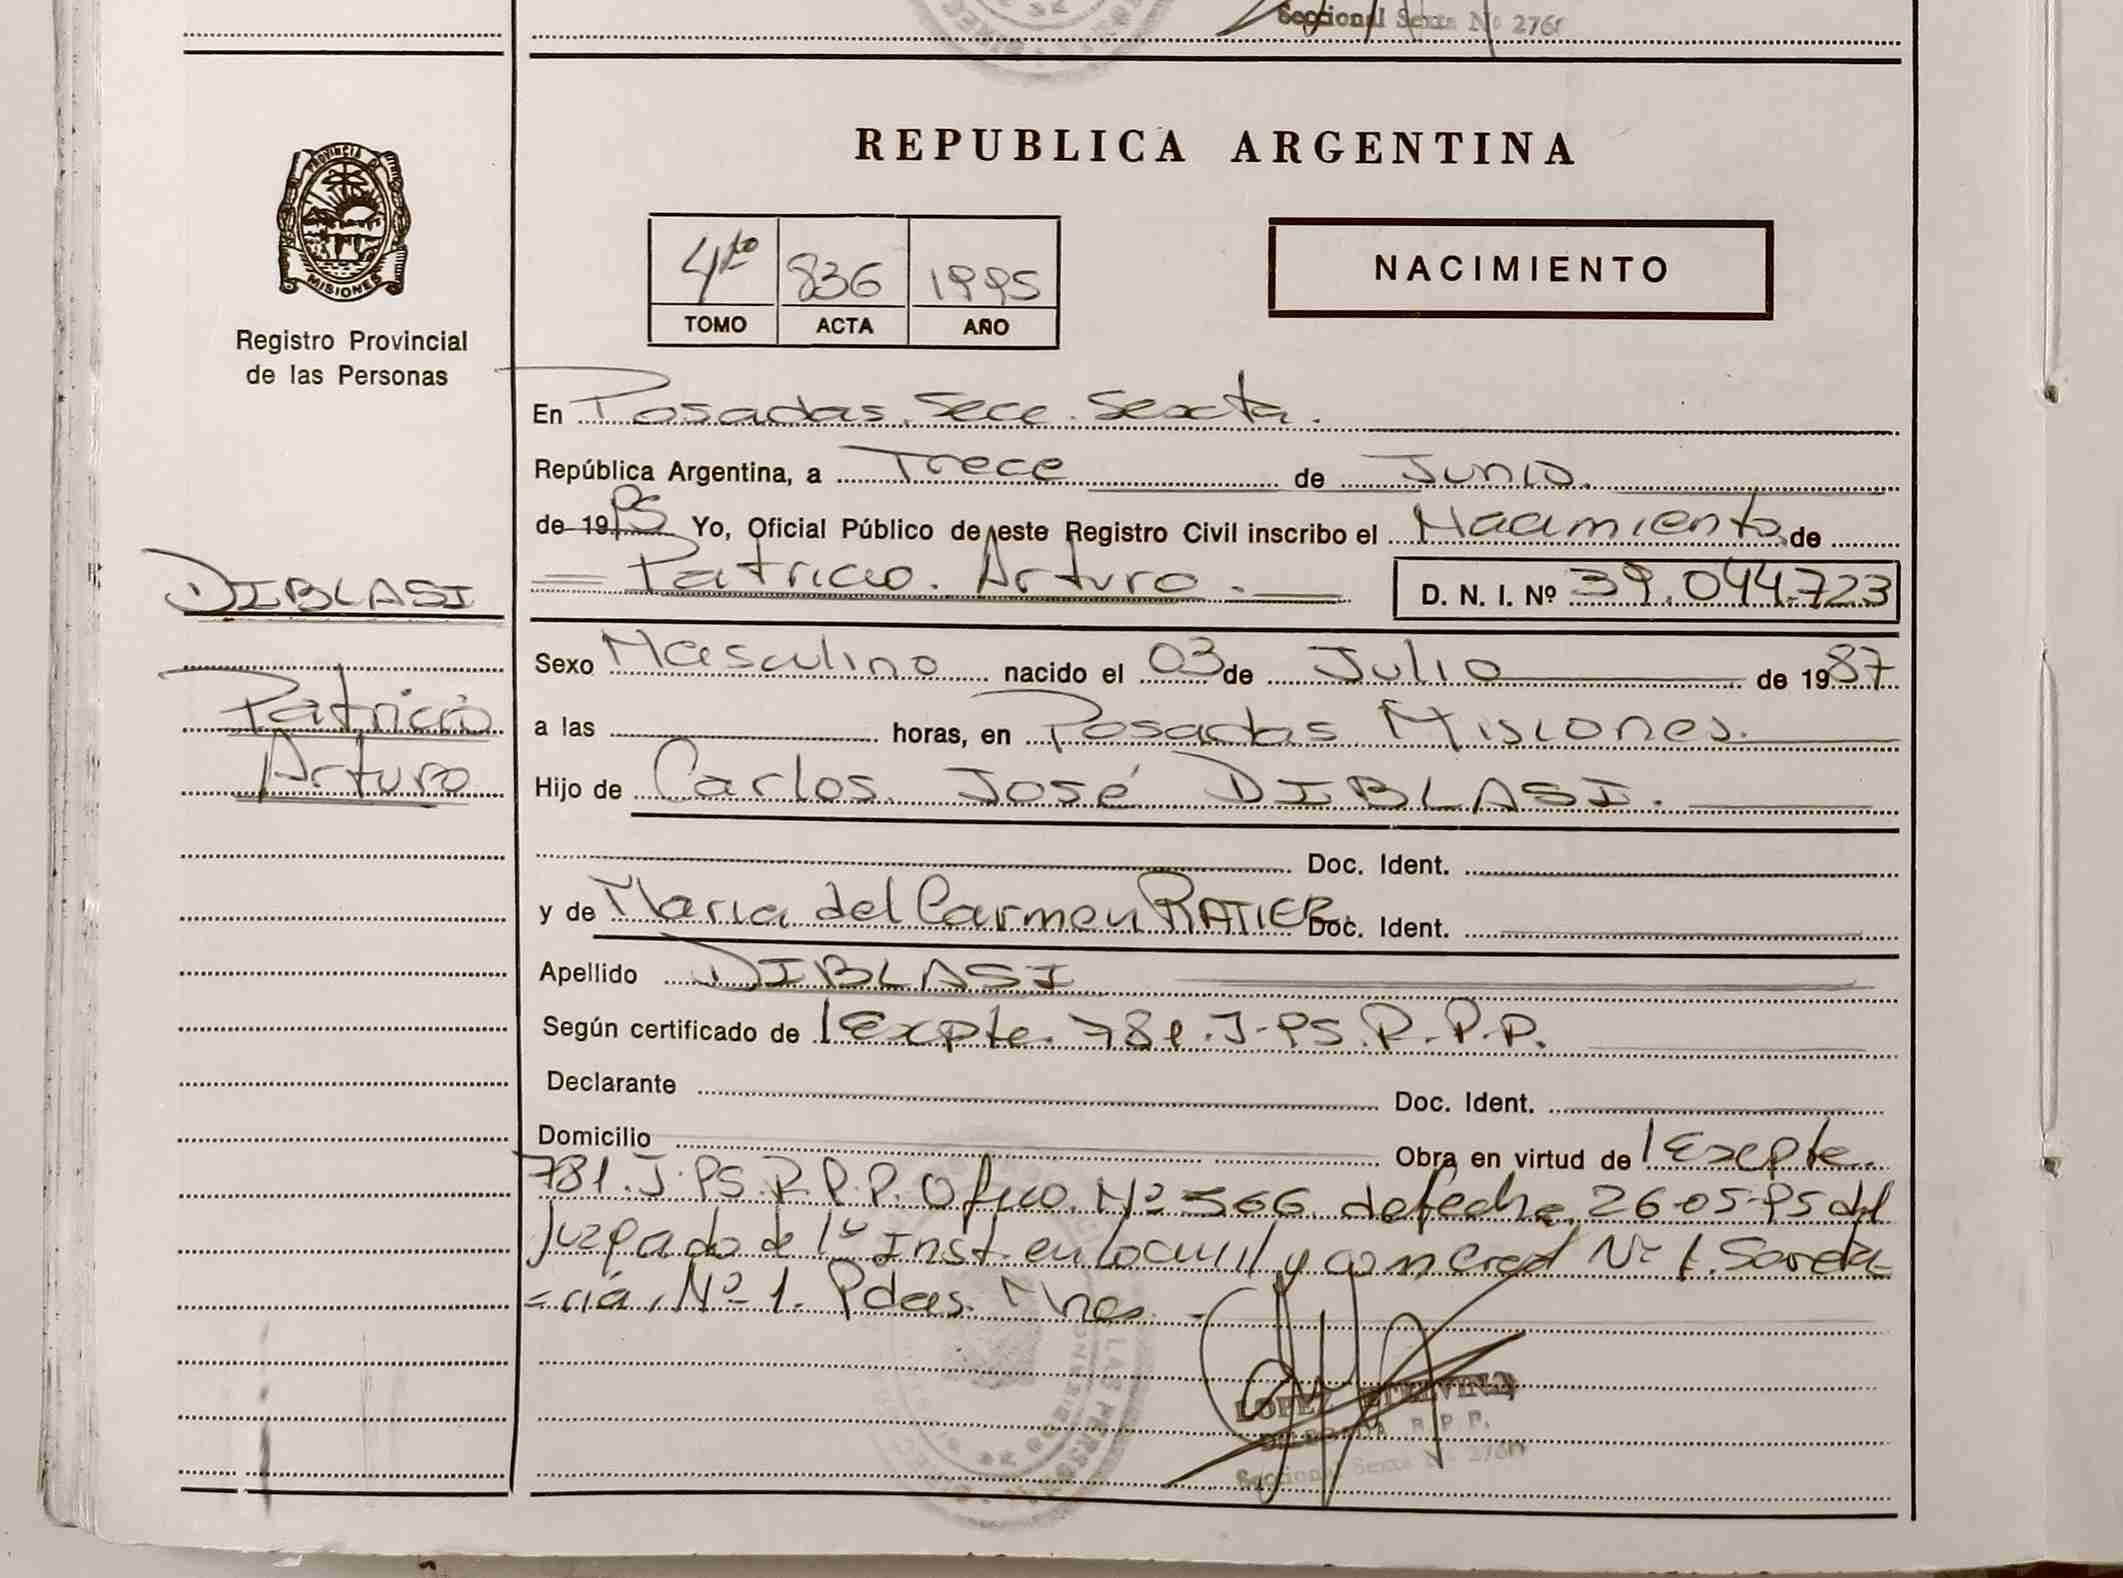 Seccional Sexta Nº 2760
REPUBLICA ARGENTINA
PROVINCIA D
MISIONES
Registro Provincial
de las Personas
4to 836 1995
TOMO ACTA AÑO
NACIMIENTO
En Posadas. Secc. Sexta.
República Argentina, a Trece de Junio.
de 1995 Yo, Oficial Público de este Registro Civil inscribo el Nacimiento de
Patricio. Arturo. D. N. I. Nº 39.044.723
DIBLASI
Patricio
Arturo
Sexo Masculino nacido el 03 de Julio de 1987
a las horas, en Posadas Misiones.
Hijo de Carlos José DIBLASI.
Doc. Ident.
y de Maria del Carmen RATIER Doc. Ident.
Apellido DIBLASI
Según certificado de Expte. 781. J-95. R. P. P.
Declarante Doc. Ident.
Domicilio Obra en virtud de Expte.
781. J-95. R. P. P. Oficio. Nº 566 de fecha 26-05-95 del
Juzgado de 1º Inst. en lo Civil y Comercial Nº 1. Secreta
=ria, Nº 1. Pdas. Mnes.
LOPEZ ETELVINA
DELEGADA R. P. P.
Seccional Sexta Nº 2760